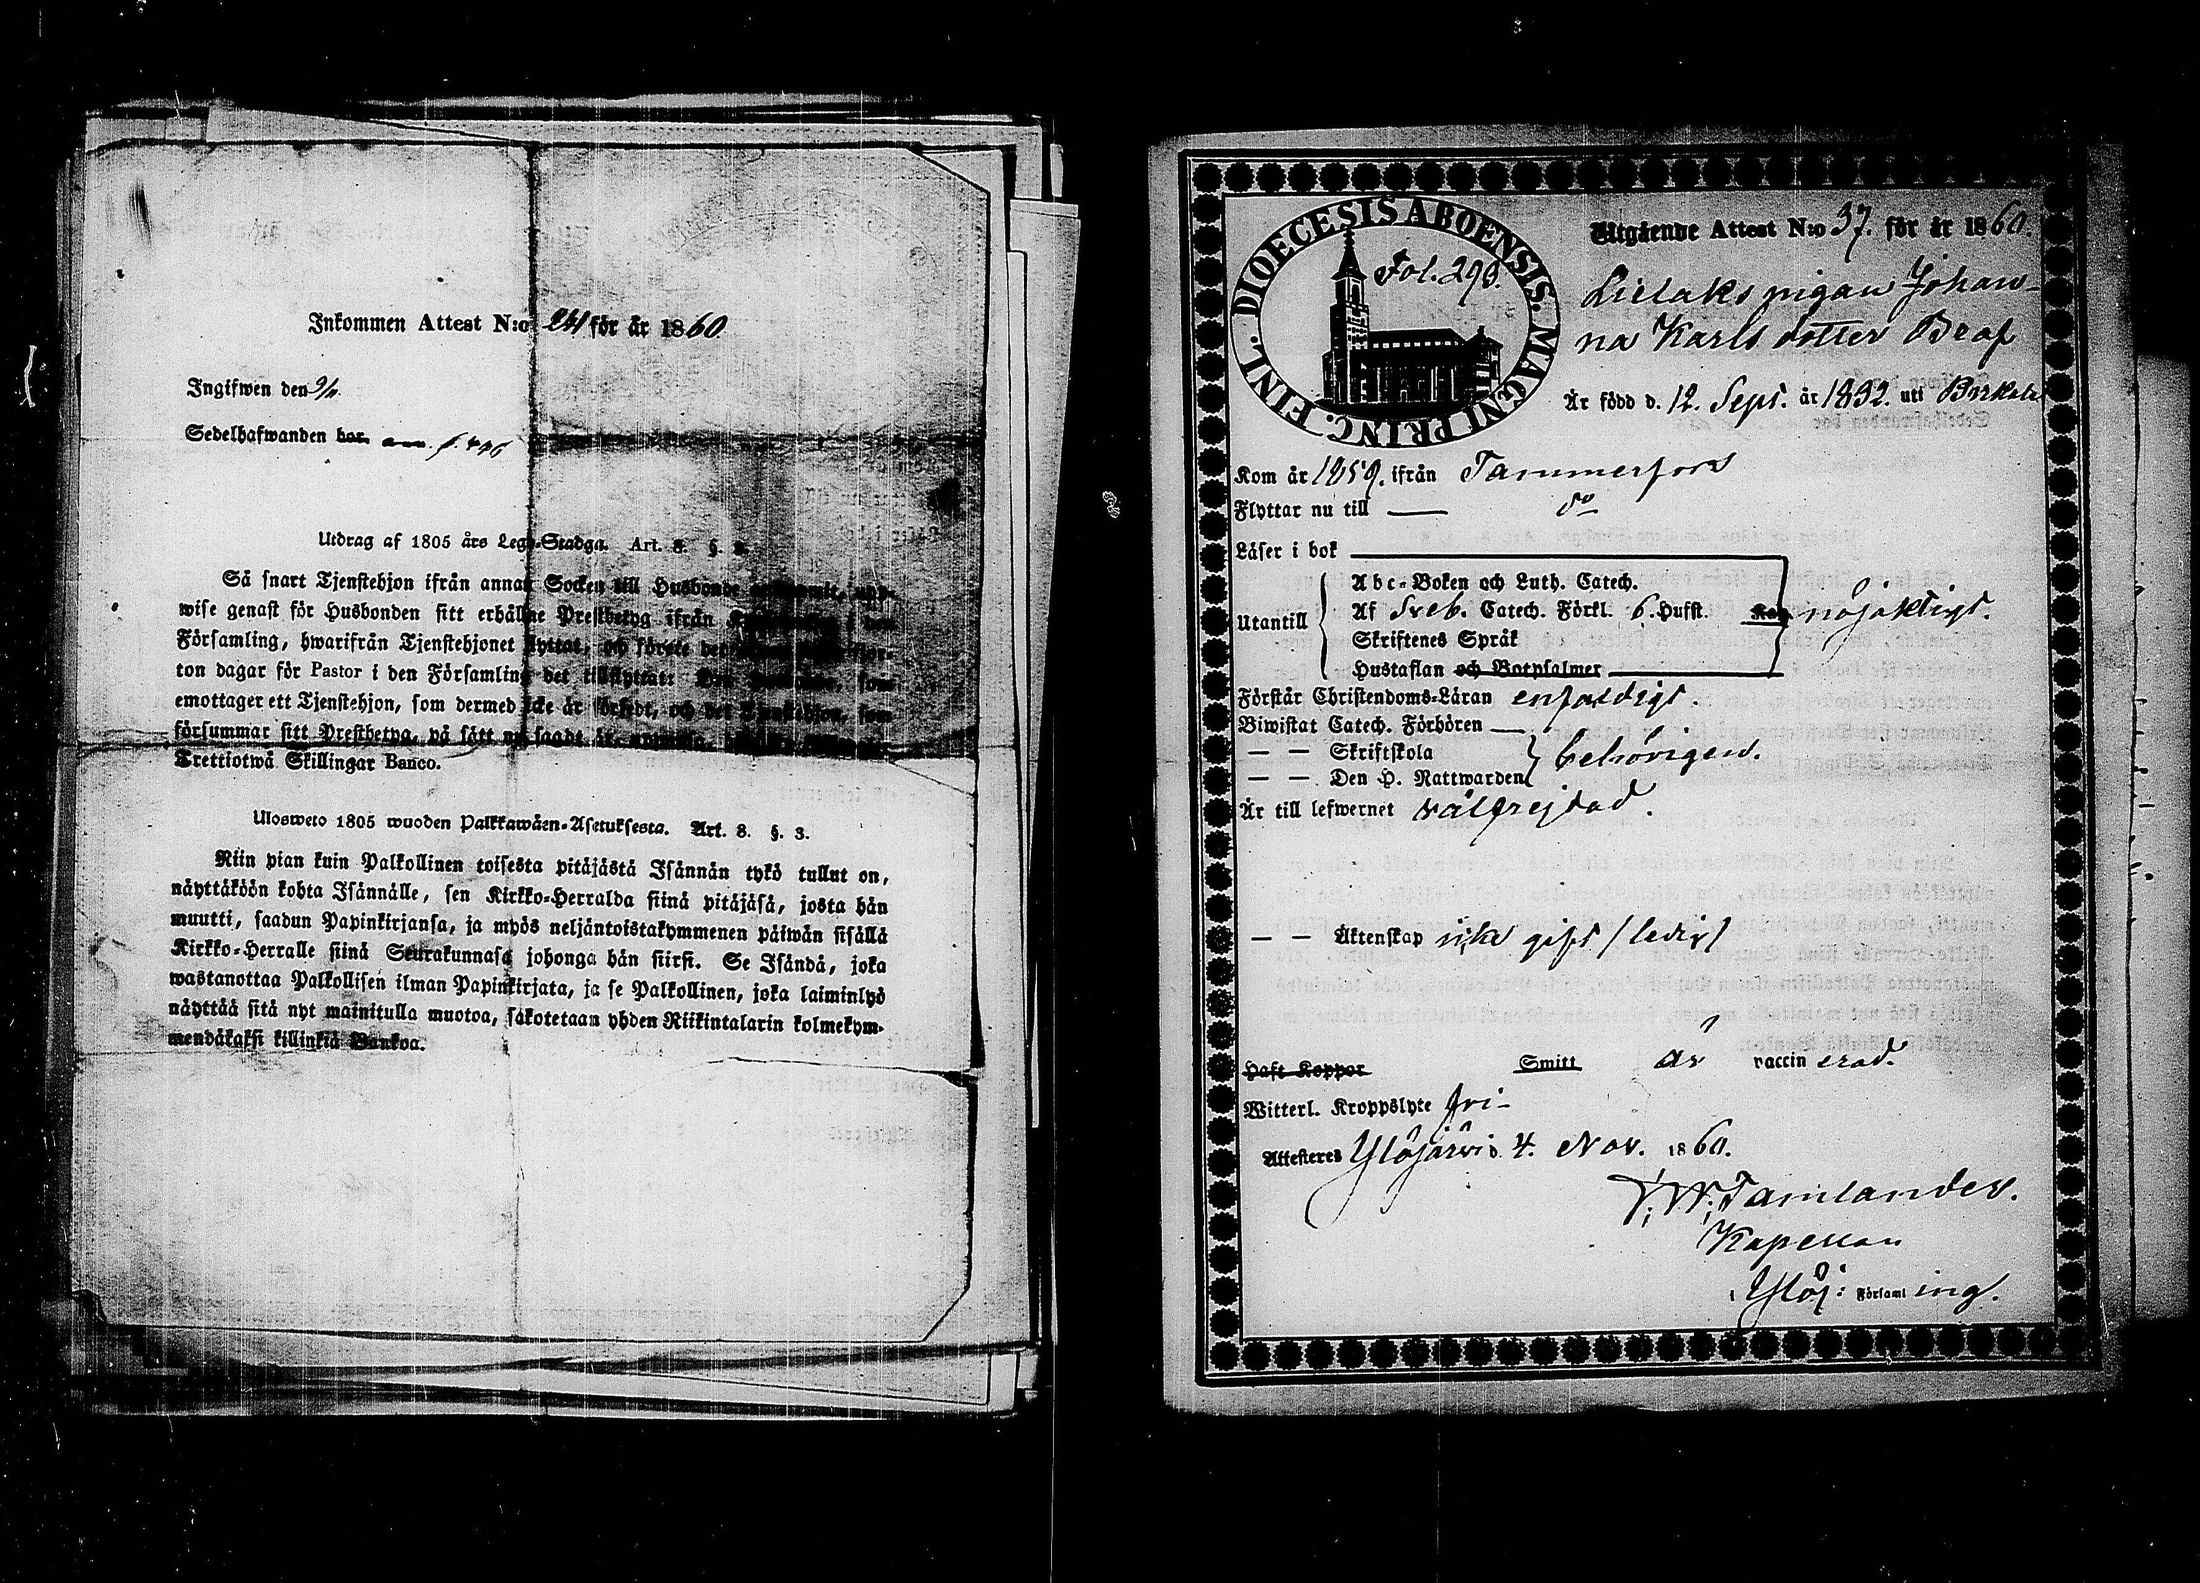 Inkommen Attest N:o 241 för år 1860
Ingifwen den 9/11
Sedelhafwanden bor am. f. 446
Utdrag af 1805 års Lego-Stadga. Art. 8. §. 3.
Så snart Tjenstehjon ifrån annan Socken till Husbonde
wise genast för Husbonden sitt erhållne Prestbetyg ifrån
Församling, hwarifrån Tjenstehjonet flyttat, och förete det
ton dagar för Pastor i den Församling det tillflyttat: Den
emottager ett Tjenstehjon, som dermed icke är försedt, och det Tjenstehjon, som
försummar sitt Prestbetyg, på sätt nu sagdt är,
Trettiotwå Skillingar Banco.
Ulosweto 1805 wuoden Palkkawäen-Asetuksesta. Art. 8. §. 3.
Niin pian kuin Palkollinen toisesta pitäjästä Isännän tykö tullut on,
näyttäköön kohta Isännälle, sen Kirkko-Herralda siinä pitäjäsä, josta hän
muutti, saadun Papinkirjansa, ja myös neljäntoistakymmenen päiwän sisällä
Kirkko-Herralle siinä Seurakunnasa johonga hän siirsi. Se Isändä, joka
wastanottaa Palkollisen ilman Papinkirjata, ja se Palkollinen, joka laiminlyö
näyttää sitä nyt mainitulla muotoa, sakotetaan yhden Riikintalarin kolmekym-
mendäkaksi killinkiä Bankoa.
DIOECESIS ABOENSIS. MAGNI PRINC. FINL.
Fol. 293.
Utgående Attest N:o 37. för år 1860.
Lielaks pigan Johan-
na Karls dotter Beaf
Är född d. 12. Sept. år 1832. uti Birkala
Kom år 1859. ifrån Tammerfors
Flyttar nu till — do
Läser i bok
Utantill
Abc-Boken och Luth. Catech.
Af Sveb. Catech. Förkl. 6. Hufst. Kap. nöjaktigt.
Skriftenes Språk
Hustaflan och Botpsalmer
Förstår Christendoms-Läran enfaldigt.
Biwistat Catech. Förhören —
— — Skriftskola behörigen.
— — Den H. Nattwarden
Är till lefwernet välfrejdad.
— — Äktenskap icke gift / ledig /
Haft Koppor Smitt är vaccinerad.
Witterl. Kroppslyte fri-
Attesteres Ylöjärvi d. 4. Nov. 1860.
Tamlander.
Kapellan
i Ylöj: Församling.